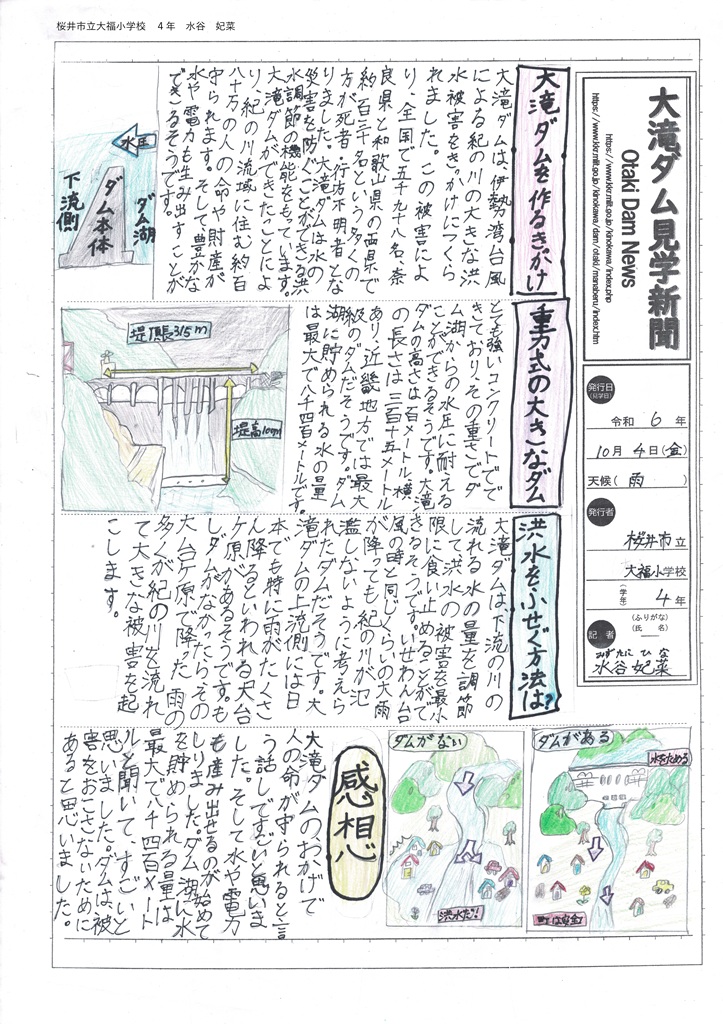 桜井市立大福小学校　4年　水谷　妃菜
大滝ダム見学新聞
Otaki Dam News
https://www.kkr.mlit.go.jp/kinokawa/index.php
https://www.kkr.mlit.go.jp/kinokawa/dam/otaki/manaberu/index.htm
発行日
(見学日)
令和 6 年
10月 4日(金)
天候( 雨 )
発行者
桜井市立
大福小学校
(学年) 4年
記者
(ふりがな)
(氏名)
みずたに ひな
水谷 妃菜
大滝ダムを作るきっかけ
大滝ダムは、伊勢湾台風
による紀の川の大きな洪
水被害をきっかけにつくら
れました。この被害によ
り、全国で五千九十八名、奈
良県と和歌山県の両県で
約百三千名という多くの
方が死者・行方不明者とな
りました。大滝ダムは水の
災害を防ぐことができる洪
水調節の機能をもっています。
大滝ダムができたことによ
り、紀の川流域に住む約百
八十万の人の命や財産が
守られます。そして、豊かな
水や電力も生み出すことが
できるそうです。
水圧
ダム湖
ダム本体
下流側
重力式の大きなダム
とても強いコンクリートでで
きており、その重さでダ
ム湖からの水圧に耐える
ことができるそうです。大滝
ダムの高さは百メートル、横
の長さは三百十五メートル
あり、近畿地方では最大
級のダムだそうです。ダム
湖に貯められる水の量
は最大で八千四百メートルです。
堤頂長315m
堤高100m
洪水をふせぐ方法は?
大滝ダムは、下流の川の
流れる水の量を調節
して洪水の被害を最小
限に食い止めることがで
きるそうです。いせわん台
風の時と同じくらいの大雨
が降っても紀の川が氾
濫しないように考えら
れたダムだそうです。大
滝ダムの上流側には日
本でも特に雨がたくさ
ん降るといわれる大台
ケ原があるそうです。も
しダムがなかったらその
大台ケ原で降った雨の
多くが紀の川を流れ
て大きな被害を起
こします。
ダムがある
水をためる
町は安全
ダムがない
洪水だ!!
感想
大滝ダムのおかげで
人の命が守られると言
う話しですごいと思いま
した。そして水や電力
も産み出せるのが始めて
しりました。ダム湖に水
を貯められる量は
最大で八千四百メート
ルと聞いて、すごいと
思いました。ダムは、被
害をおこさないために
あると思いました。